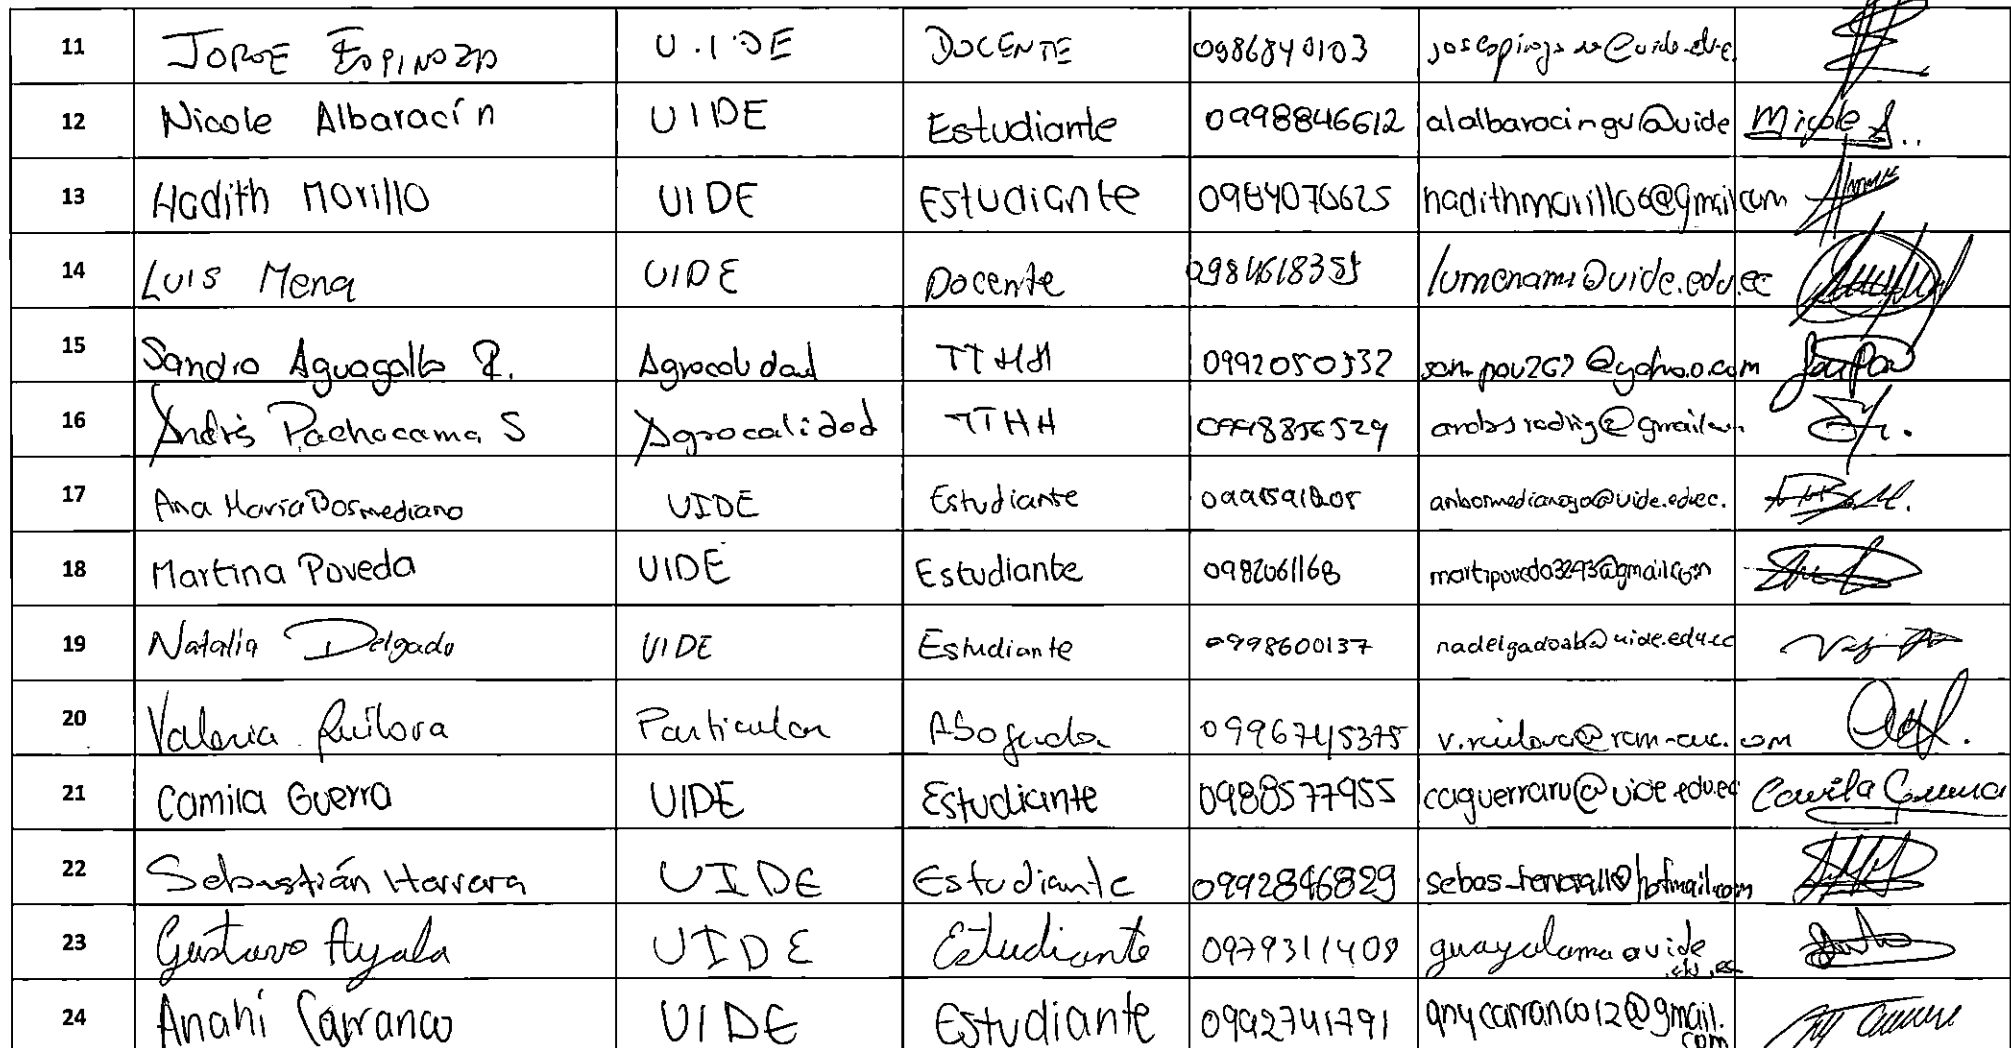 11 JORGE ESPINOZA U.IDE DOCENTE 0986840103
12 Nicole Albaracín UIDE Estudiante 0998846612 alalbaracingu@uide Nicole A..
13 Hadith Morillo UIDE Estudiante 0984076625 hadithmorillo6@gmail.com
14 Luis Mena UIDE Docente lumenami@uide.edu.ec
15 Sandra Aguagallo R. Agrocalidad TTHH 0992050532 san-pau262@yahoo.com
16 Andrés Pachacama S Agrocalidad TTHH
17 Ana María Bosmediano UIDE Estudiante
18 Martina Poveda UIDE Estudiante 0982061168 martipoveda3293@gmail.com
19 Natalia Delgado UIDE Estudiante 0998600137 nadelgadoab@uide.edu.ec
20 Valeria Particular Abogada 0996745375
21 Camila Guerra UIDE Estudiante 0988577955 caguerraru@uide.edu.ec Camila Guerra
22 Sebastián Herrera UIDE Estudiante 0992846829
23 Gustavo Ayala UIDE Estudiante 0979311408
24 Anahí Carranco UIDE Estudiante 0992741791 anycarranco12@gmail.
com